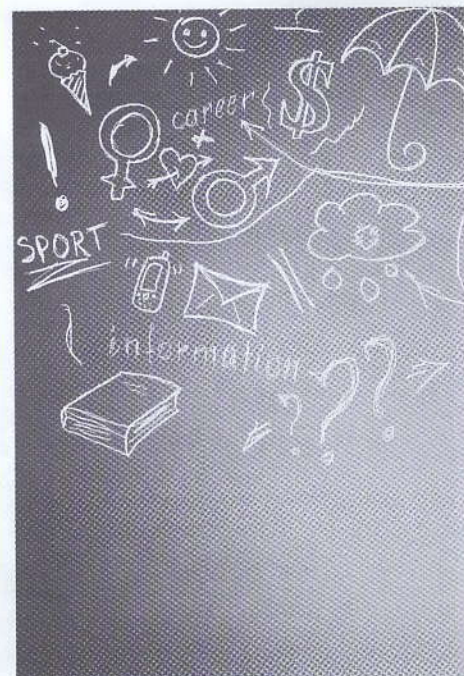 career
$
!
SPORT
information
???